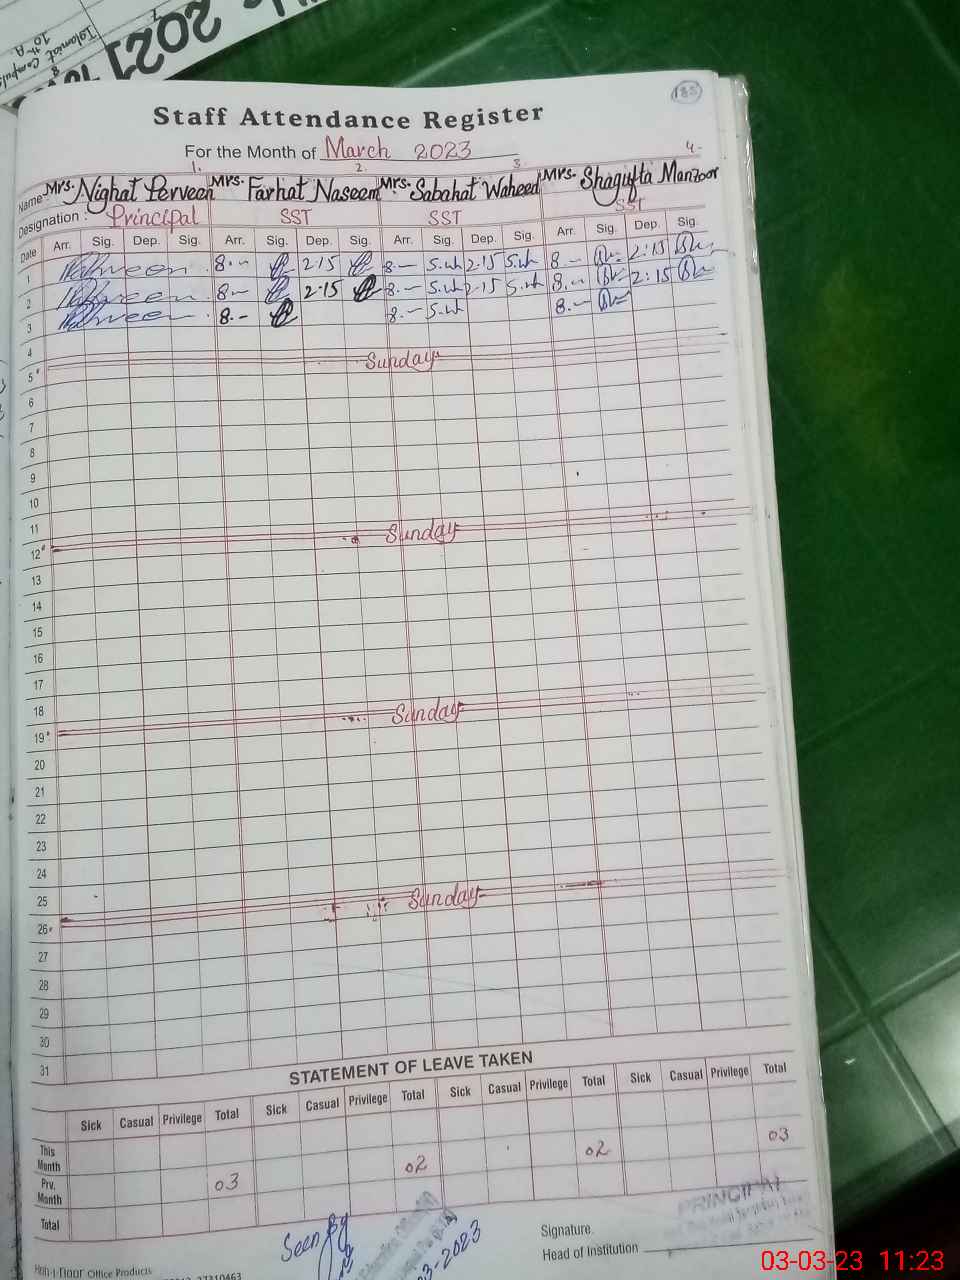 2021
Islamiat Compuls
10th A
183
Staff Attendance Register
For the Month of March 2023
1. 2. 3. 4.
Name: Mrs. Nighat Perveen Mrs. Farhat Naseem Mrs. Sabahat Waheed Mrs. Shagufta Manzoor
Designation: Principal SST SST SST
Date Arr. Sig. Dep. Sig. Arr. Sig. Dep. Sig. Arr. Sig. Dep. Sig. Arr. Sig. Dep. Sig.
1 8.- 2·15 8.- S.W 2·15 S.W 8.- 2:15
2 8.- 2·15 8.- S.W 2·15 S.W 8.- 2:15
3 8.- 8.- S.W 8.-
4
5 Sunday
6
7
8
9
10
11
12 Sunday
13
14
15
16
17
18
19 Sunday
20
21
22
23
24
25
26 Sunday
27
28
29
30
31
STATEMENT OF LEAVE TAKEN
Sick Casual Privilege Total Sick Casual Privilege Total Sick Casual Privilege Total Sick Casual Privilege Total
This Month
Prv. Month 03 02 02 03
Total
Seen By
3-2023
PRINCIPAL
Signature.
Head of Institution
Office Products
37310463
03-03-23 11:23